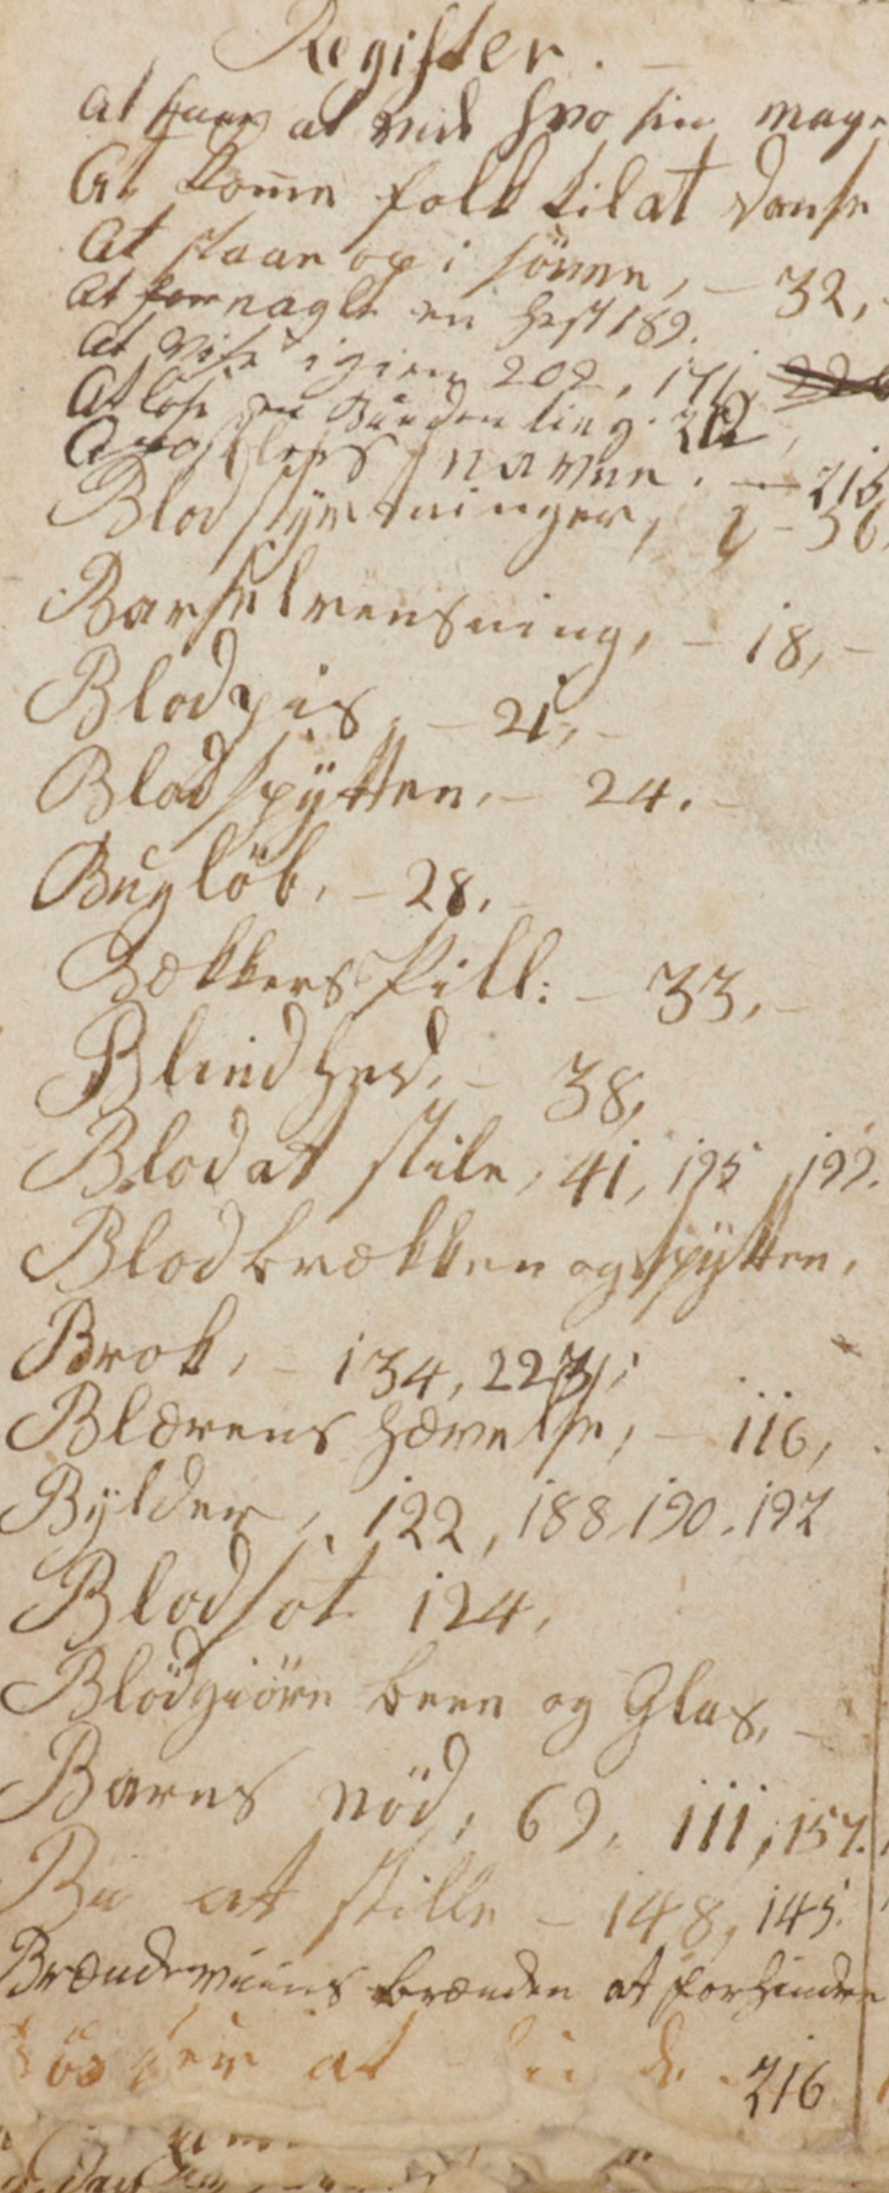 Register. —
At faae at vide hvo sin mage
At kome folk til at danse
At staae op i sövne, — 32,
At fornagle en hest 189.
At vise igien 202, 171,
At löse en Bunden ting. 212,
Apostlers navne. — 215
Blodstyrtninger, 2 – 36
Barselrensning, – 18, –
Blodpis, – 21, –
Blodspÿtten, – 24. –
Bugløb, – 28, –
Bækkers Pill: – 33, –
Blindhed, – 38,
Blod at stile, 41, 195, 199.
Blodbrækken og spÿtten,
Brok, – 134, 223,
Blærens hævelse, – 116,
Bÿlder, 122, 188, 190. 192
Blodsot 124,
Blödgiöre been og Glas, –
Barns nöd, 69, 111, 157.
Bii at stille – 148, 145.
Brændeviins brænden at forhindre
at 216